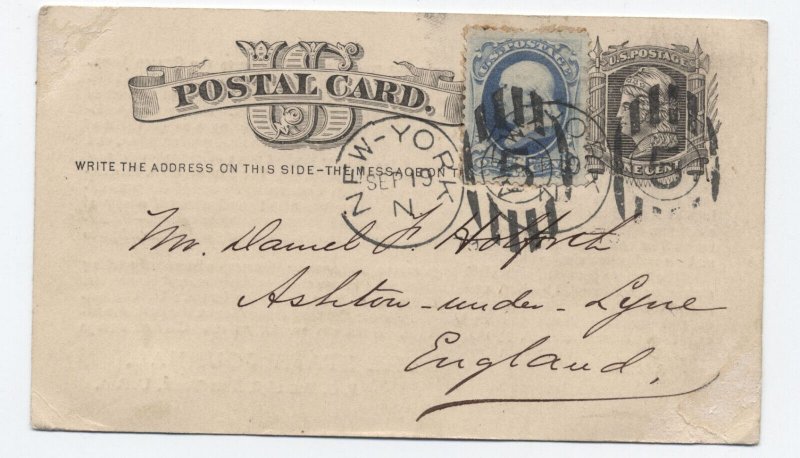 US
POSTAL CARD.
U.S. POSTAGE
U.S. POSTAGE
ONE CENT
WRITE THE ADDRESS ON THIS SIDE–THE MESSAGE ON
NEW-YORK
SEP 19
N
Mr. Daniel F. Holforth
Ashton-under-Lyne
England.